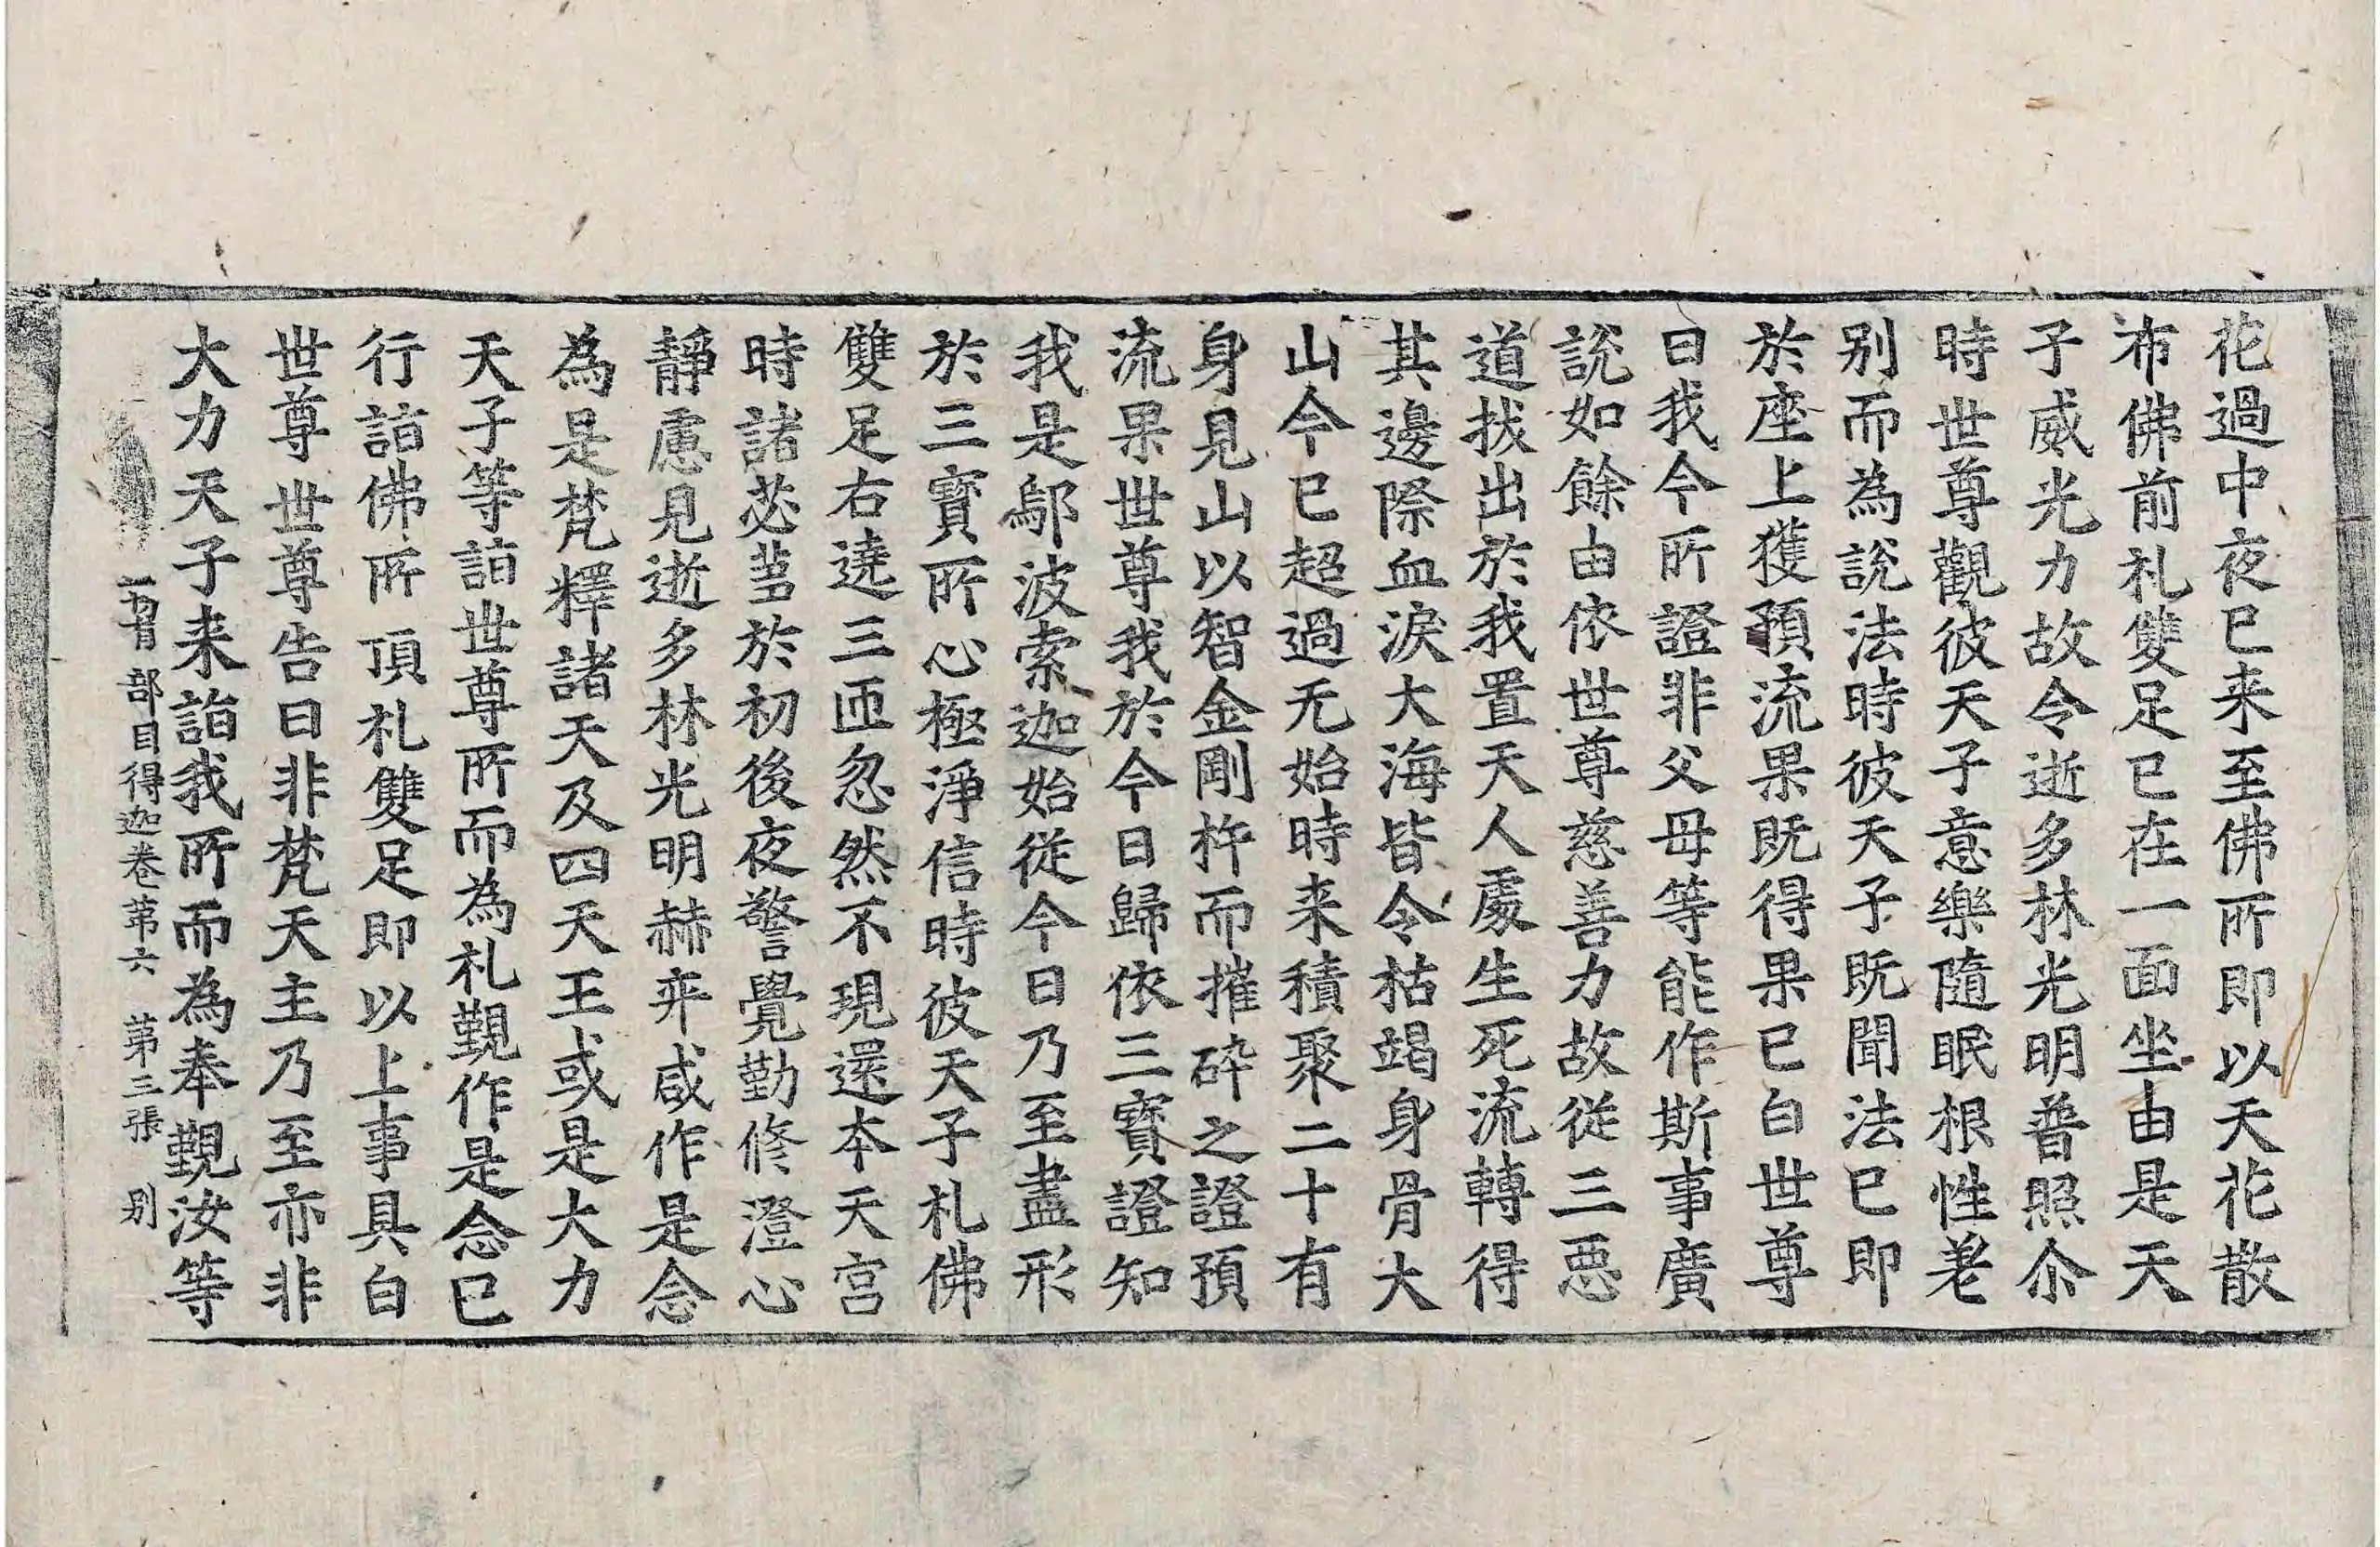 花過中夜已来至佛所即以天花散
布佛前礼雙足已在一面坐由是天
子威光力故令逝多林光明普照尒
時世尊觀彼天子意樂隨眠根性差
别而為說法時彼天子既聞法已即
於座上獲預流果既得果已白世尊
曰我今所證非父母等能作斯事廣
說如餘由依世尊慈善力故從三惡
道拔出於我置天人處生死流轉得
其邊際血淚大海皆令枯竭身骨大
山今已超過无始時来積聚二十有
身見山以智金剛杵而摧碎之證預
流果世尊我於今日歸依三寶證知
我是鄔波索迦始從今日乃至盡形
於三寶所心極淨信時彼天子礼佛
雙足右遶三匝忽然不現還本天宮
時諸苾芻於初後夜警覺勤修澄心
靜慮見逝多林光明赫弈咸作是念
為是梵釋諸天及四天王或是大力
天子等詣世尊所而為礼覲作是念已
行詣佛所頂礼雙足即以上事具白
世尊世尊告曰非梵天主乃至亦非
大力天子来詣我所而為奉覲汝等
部目得迦卷第六 第三張 别